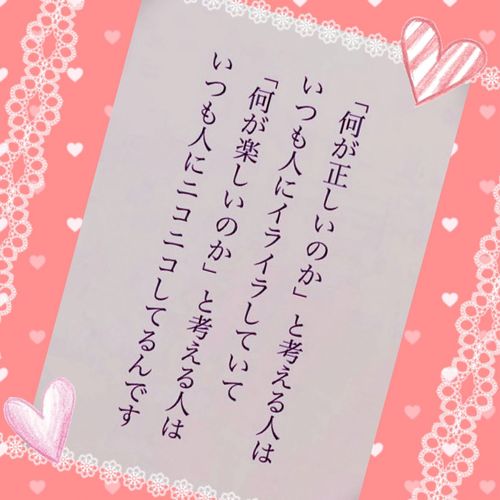 「何が正しいのか」と考える人は
いつも人にイライラしていて
「何が楽しいのか」と考える人は
いつも人にニコニコしてるんです